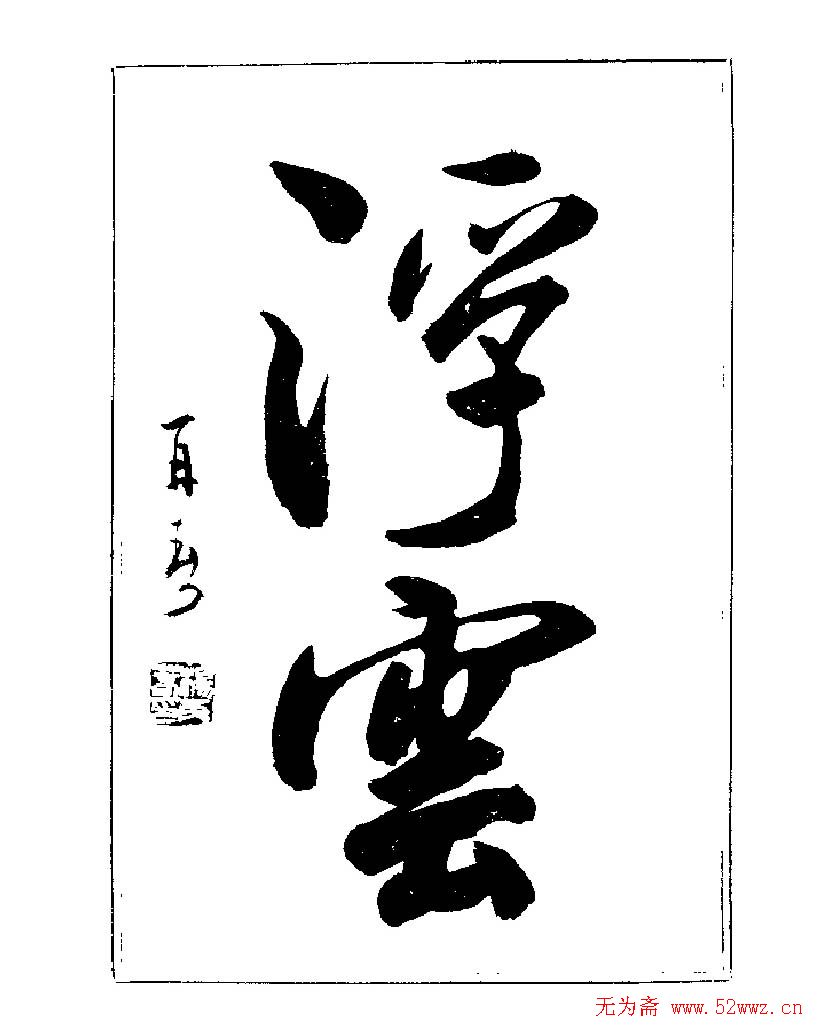 浮雲
再春
无为斋 www.52wwz.cn